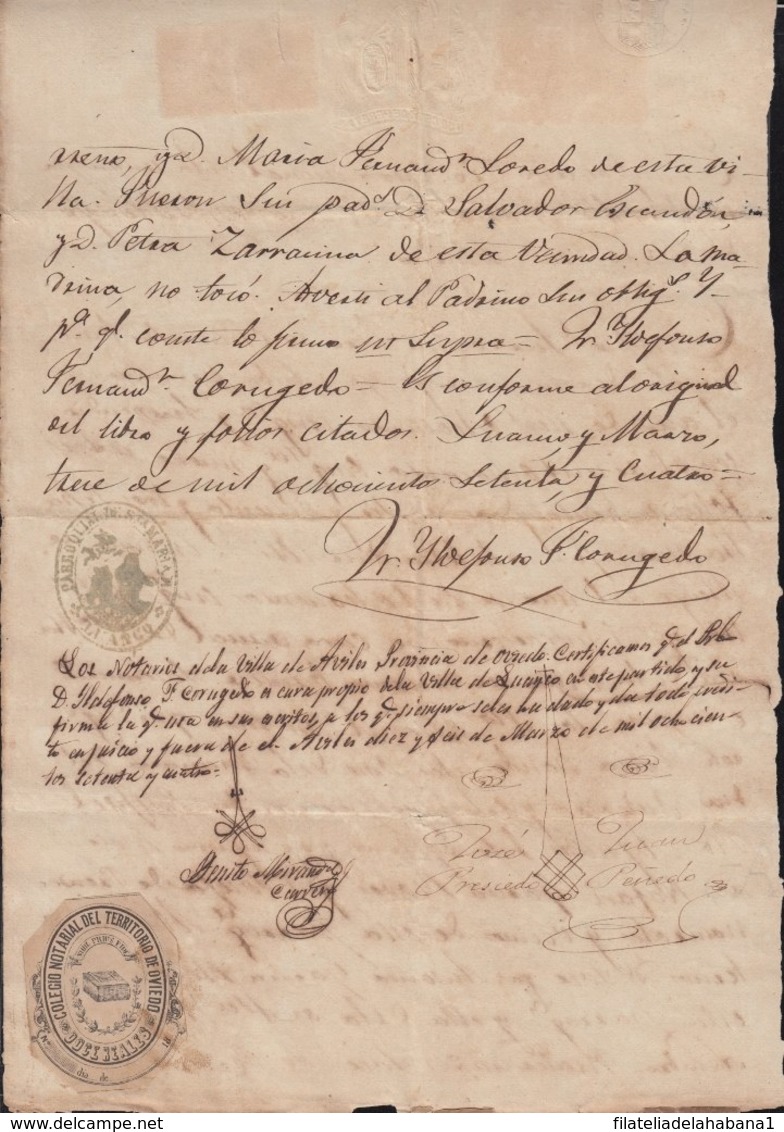 rreno, y D. Maria Fernand^z Loredo de esta vi-
lla. Fueron sus pad^s D. Salvador Escandón,
y D. Petra Zarracina de esta Vecindad. La ma-
drina, no tocó. Avertí al Padrino sus oblig^s. Y
p^a q^e conste lo firmo ut Supra = Fr. Yldefonso
Fernand^z Corugedo = Es conforme al original
del libro y folios citados. Luanco, y Marzo,
trece de mil ochociento Setenta, y Cuatro =
Fr. Yldefonso F. Corugedo
PARROQUIA DE STA MARIA
LUANCO
Los Notarios de la Villa de Aviles Provincia de Oviedo. Certificamos q^e el Pbro
D. Ildefonso F. Corugedo es cura propio de la Villa de Luanco en este partido, y su
firma la q^e usa en sus escritos, a los q^e siempre se les ha dado y da todo credi-
to en juicio y fuera de el. Aviles diez y seis de Marzo de mil ochocien-
tos setenta y cuatro =
José Juan
Benito Miranda
Presiedo Peñedo
COLEGIO NOTARIAL DEL TERRITORIO DE OVIEDO
DOCE REALES
día de
filateliadelahabana1